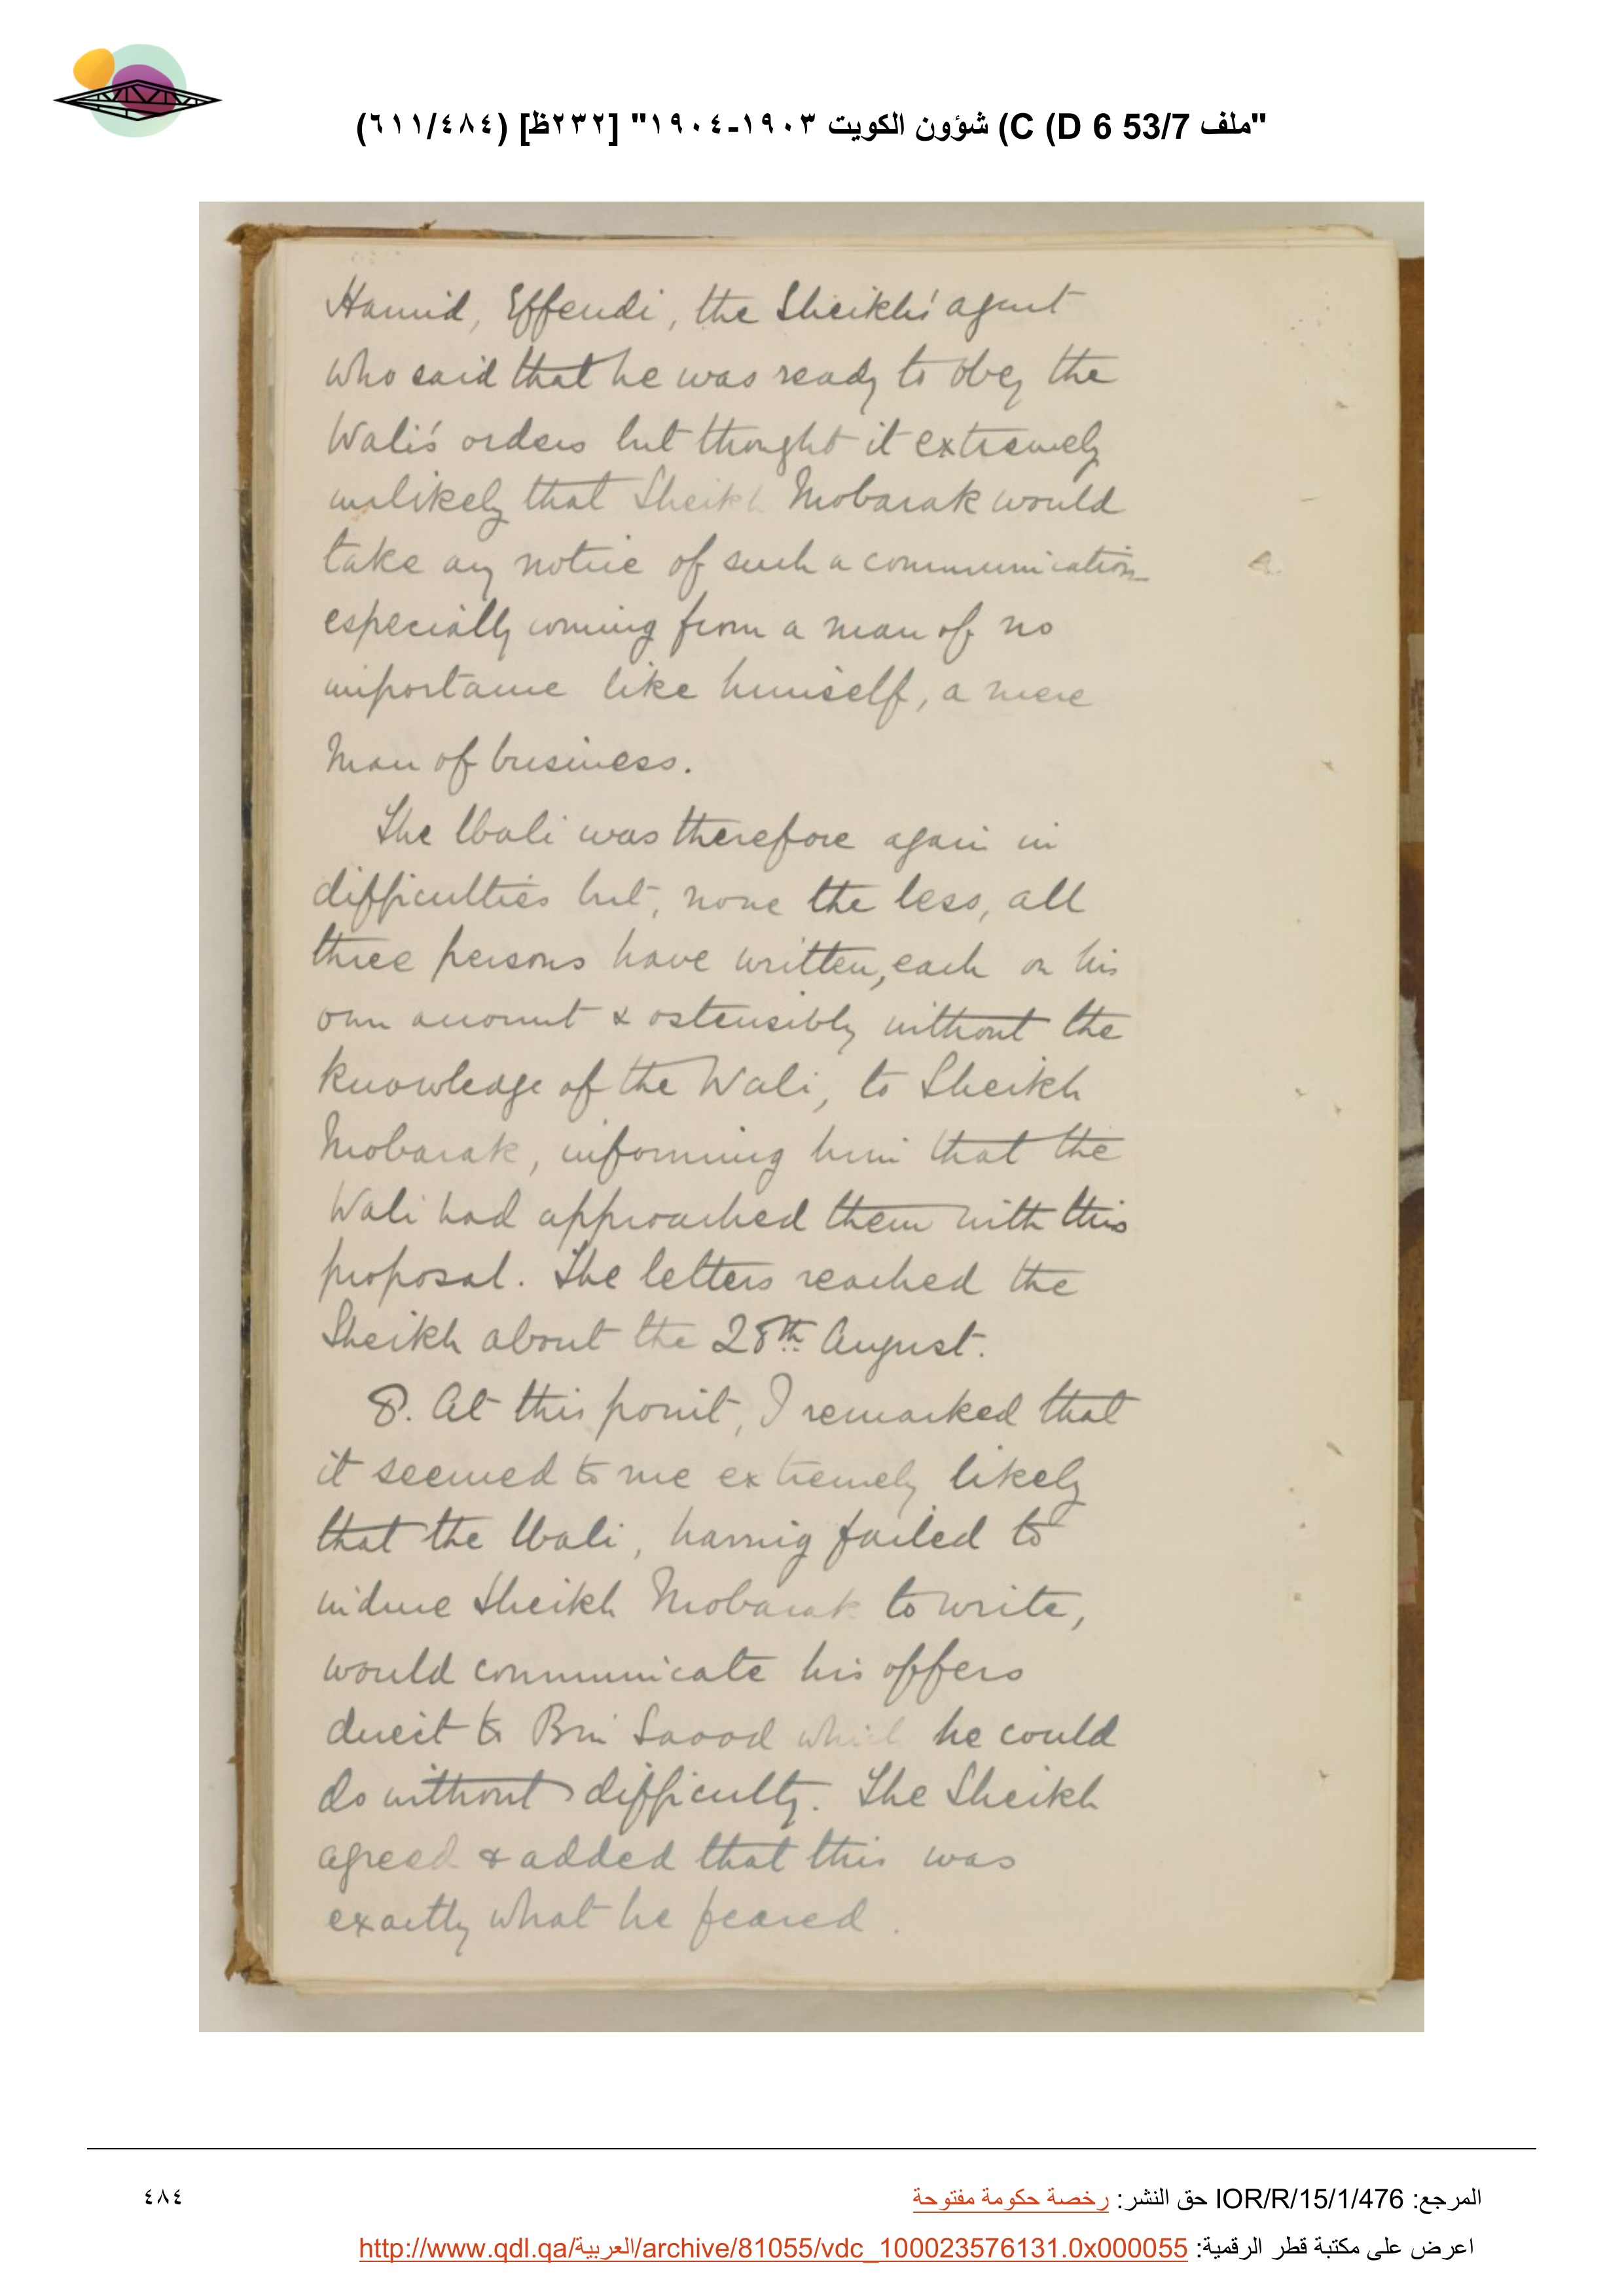 "ملف 53/7 D 6) C) شؤون الكويت ١٩٠٣-١٩٠٤" [٢٣٢ظ] (٦١١/٤٨٤)
Hamid, Effendi, the Sheikh's agent
who said that he was ready to obey the
Wali's orders but thought it extremely
unlikely that Sheikh Mobarak would
take any notice of such a communication
especially coming from a man of no
importance like himself, a mere
man of business.
The Wali was therefore again in
difficulties but, none the less, all
three persons have written, each on his
own account & ostensibly without the
knowledge of the Wali, to Sheikh
Mobarak, informing him that the
Wali had approached them with this
proposal. The letters reached the
Sheikh about the 28th August.
8. At this point, I remarked that
it seemed to me extremely likely
that the Wali, having failed to
induce Sheikh Mobarak to write,
would communicate his offers
direct to Bin Saood which he could
do without difficulty. The Sheikh
agreed & added that this was
exactly what he feared.
المرجع: IOR/R/15/1/476 حق النشر: رخصة حكومة مفتوحة
٤٨٤
اعرض على مكتبة قطر الرقمية: http://www.qdl.qa/العربية/archive/81055/vdc_100023576131.0x000055